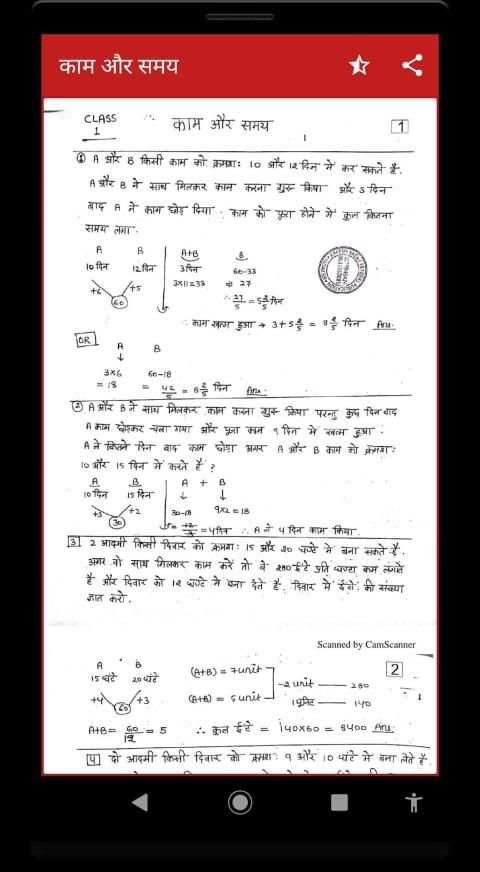 काम और समय
CLASS
1
∴ काम और समय
1
① A और B किसी काम को क्रमशः 10 और 12 दिन में कर सकते हैं.
A और B ने साथ मिलकर काम करना शुरू किया और 3 दिन
बाद A ने काम छोड़ दिया. काम को पुरा होने में कुल कितना
समय लगा.
A B
10 दिन 12 दिन
+6 +5
60
A+B
3 दिन
3×11=33
B
60-33
⇒ 27
∴ 27/5 = 5 2/5 दिन
∴ काम खत्म हुआ → 3 + 5 2/5 = 8 2/5 दिन Ans.
OR
A B
↓
3×6 60-18
= 18 = 42/5 = 8 2/5 दिन Ans.
② A और B ने साथ मिलकर काम करना शुरू किया परन्तु कुछ दिन बाद
A काम छोड़कर चला गया और पूरा काम 9 दिन में खत्म हुआ.
A ने कितने दिन बाद काम छोड़ा अगर A और B काम को क्रमशः
10 और 15 दिन में करते हैं ?
A B
10 दिन 15 दिन
+3 +2
30
A + B
↓ ↓
30-18 9×2=18
= 4 दिन ∴ A ने 4 दिन काम किया.
3 2 आदमी किसी दिवार को क्रमशः 15 और 20 घण्टे में बना सकते हैं.
अगर वो साथ मिलकर काम करें तो वे 280 ईंटे प्रति घण्टा कम लगाते
है और दिवार को 12 घण्टे में बना देते है. दिवार में ईंटो की संख्या
ज्ञात करो.
Scanned by CamScanner
2
A B
15 घंटे 20 घंटे
+4 +3
60
(A+B) = 7 unit
(A+B) = 5 unit
-2 unit — 280
1 यूनिट — 140
A+B = 60/12 = 5 ∴ कुल ईंटे = 140×60 = 8400 Ans.
4 दो आदमी किसी दिवार को क्रमशः 9 और 10 घंटे में बना लेते हैं.